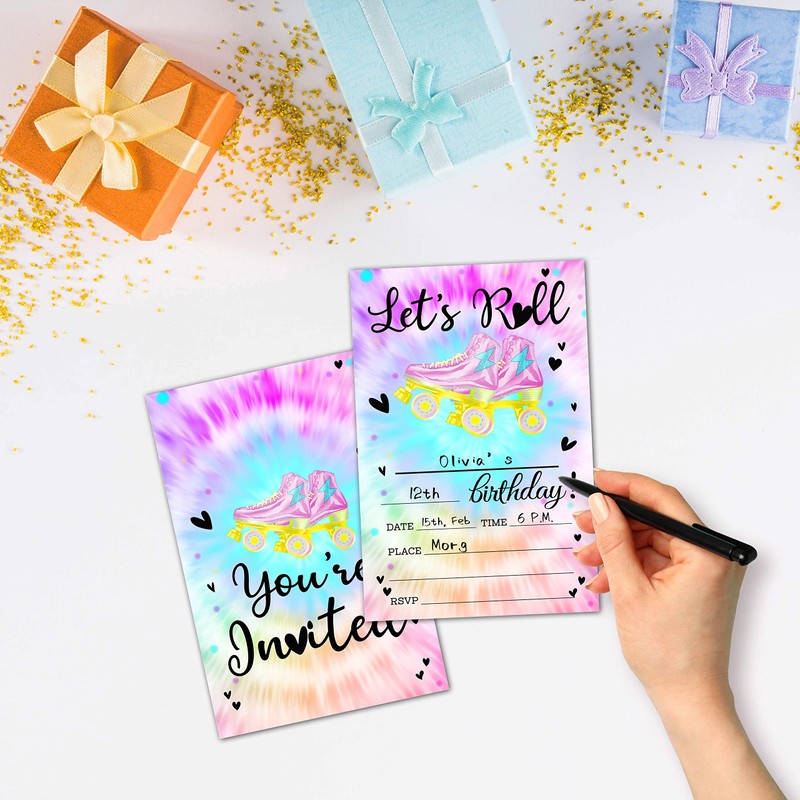 Let's Roll
Olivia's
12th birthday!
DATE 15th, Feb TIME 6 P.M.
PLACE Morg
RSVP
You're
Invited!